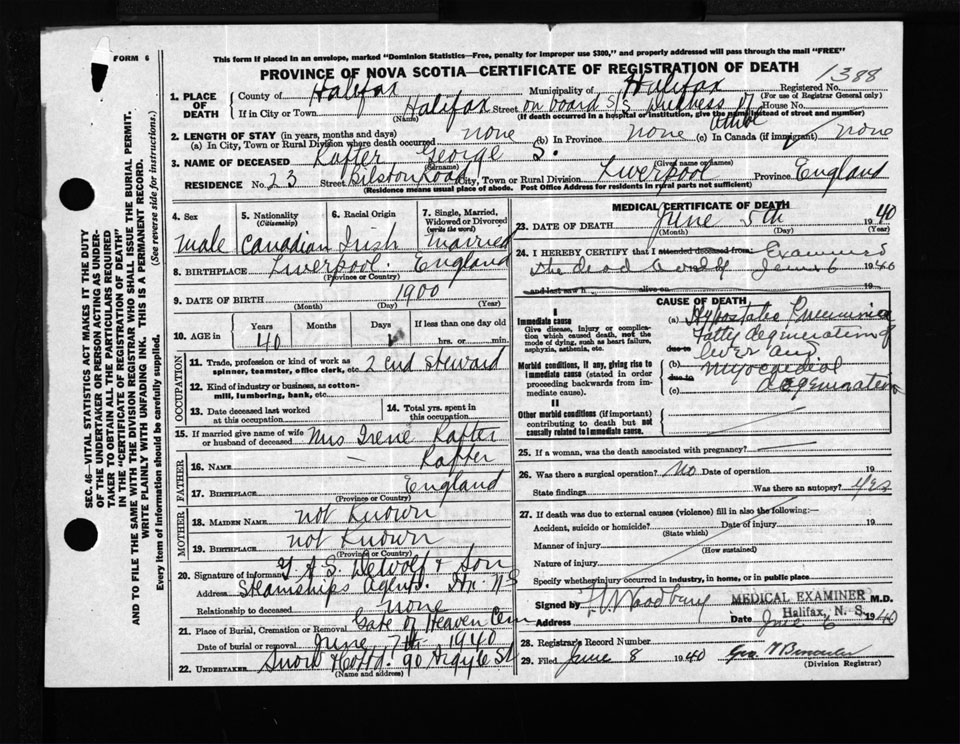 FORM 6
This form if placed in an envelope, marked "Dominion Statistics—Free, penalty for improper use $300," and properly addressed will pass through the mail "FREE"
PROVINCE OF NOVA SCOTIA—CERTIFICATE OF REGISTRATION OF DEATH
1388
1. PLACE OF DEATH
County of Halifax Municipality of Halifax Registered No.
(For use of Registrar General only)
If in City or Town Halifax Street on board S/S Duchess of Atholl House No.
(Name) (If death occurred in a hospital or institution, give the name instead of street and number)
2. LENGTH OF STAY (in years, months and days)
(a) In City, Town or Rural Division where death occurred none (b) In Province none (c) In Canada (if immigrant) none
3. NAME OF DECEASED Rafter George S.
(Surname) (Given name or names)
RESIDENCE No. 23 Street Bilston Road City, Town or Rural Division Liverpool Province England
(Residence means usual place of abode. Post Office Address for residents in rural parts not sufficient)
4. Sex
male
5. Nationality (Citizenship)
Canadian
6. Racial Origin
Irish
7. Single, Married, Widowed or Divorced (write the word)
Married
8. BIRTHPLACE Liverpool. England
(Province or Country)
9. DATE OF BIRTH 1900
(Month) (Day) (Year)
10. AGE in
Years Months Days If less than one day old
40 hrs. or min.
OCCUPATION
11. Trade, profession or kind of work as spinner, teamster, office clerk, etc. 2 end Steward
12. Kind of industry or business, as cotton-mill, lumbering, bank, etc.
13. Date deceased last worked at this occupation
14. Total yrs. spent in this occupation
15. If married give name of wife or husband of deceased Mrs Irene Rafter
FATHER
16. NAME — Rafter
17. BIRTHPLACE England
(Province or Country)
MOTHER
18. MAIDEN NAME not Known
19. BIRTHPLACE not Known
(Province or Country)
20. Signature of informant T. A. S. DeWolf & Son
Address Steamships Agents. Hx. N S
Relationship to deceased none
21. Place of Burial, Cremation or Removal Gate of Heaven Cem
Date of burial or removal June 7th 1940
22. UNDERTAKER Snow & Co Ltd. 90 Argyle St
(Name and address)
MEDICAL CERTIFICATE OF DEATH
23. DATE OF DEATH June 5th 1940
(Month) (Day) (Year)
24. I HEREBY CERTIFY that I attended deceased from: Examined
the dead body of June 6 1940
and last saw h alive on 19
CAUSE OF DEATH
I
Immediate cause
Give disease, injury or complication which caused death, not the mode of dying, such as heart failure, asphyxia, asthenia, etc.
(a) Hypostatic Pneumonia
Fatty degeneration of
due to liver and
Morbid conditions, if any, giving rise to immediate cause (stated in order proceeding backwards from immediate cause).
(b) myocardial
due to
(c) degeneration
II
Other morbid conditions (if important) contributing to death but not causally related to immediate cause.
25. If a woman, was the death associated with pregnancy?
26. Was there a surgical operation? No Date of operation 19
State findings Was there an autopsy? yes
27. If death was due to external causes (violence) fill in also the following:—
Accident, suicide or homicide? Date of injury 19
(State which)
Manner of injury
(How sustained)
Nature of injury
Specify whether injury occurred in industry, in home, or in public place
Signed by Woodbury MEDICAL EXAMINER M.D.
Address Halifax, N. S.
Date June 6 1940
28. Registrar's Record Number
29. Filed June 8 1940
(Division Registrar)
SEC. 46—VITAL STATISTICS ACT MAKES IT THE DUTY
OF THE UNDERTAKER OR PERSON ACTING AS UNDER-
TAKER TO OBTAIN ALL THE PARTICULARS REQUIRED
IN THE "CERTIFICATE OF REGISTRATION OF DEATH"
AND TO FILE THE SAME WITH THE DIVISION REGISTRAR WHO SHALL ISSUE THE BURIAL PERMIT.
WRITE PLAINLY WITH UNFADING INK. THIS IS A PERMANENT RECORD.
Every item of information should be carefully supplied. (See reverse side for instructions.)